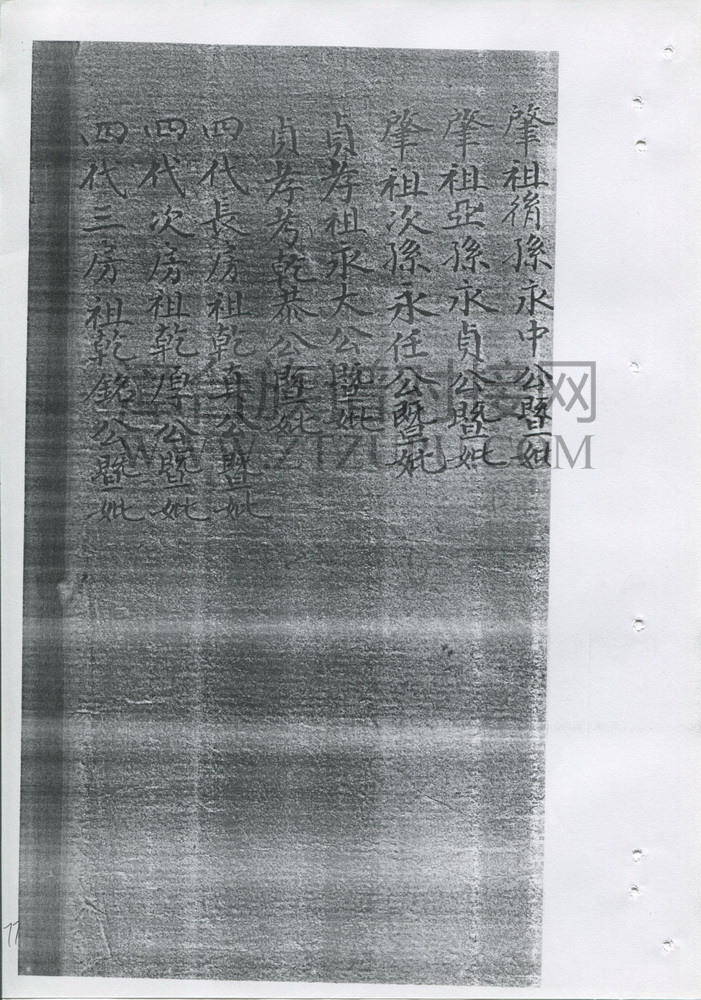 肇祖脩孫永中公暨妣
肇祖亞孫永貞公暨妣
肇祖次孫永任公暨妣
貞孝祖永大公暨妣
貞孝考乾恭公暨妣
四代長房祖乾真公暨妣
四代次房祖乾厚公暨妣
四代三房祖乾銘公暨妣
WWW.ZTZUPU.COM
77